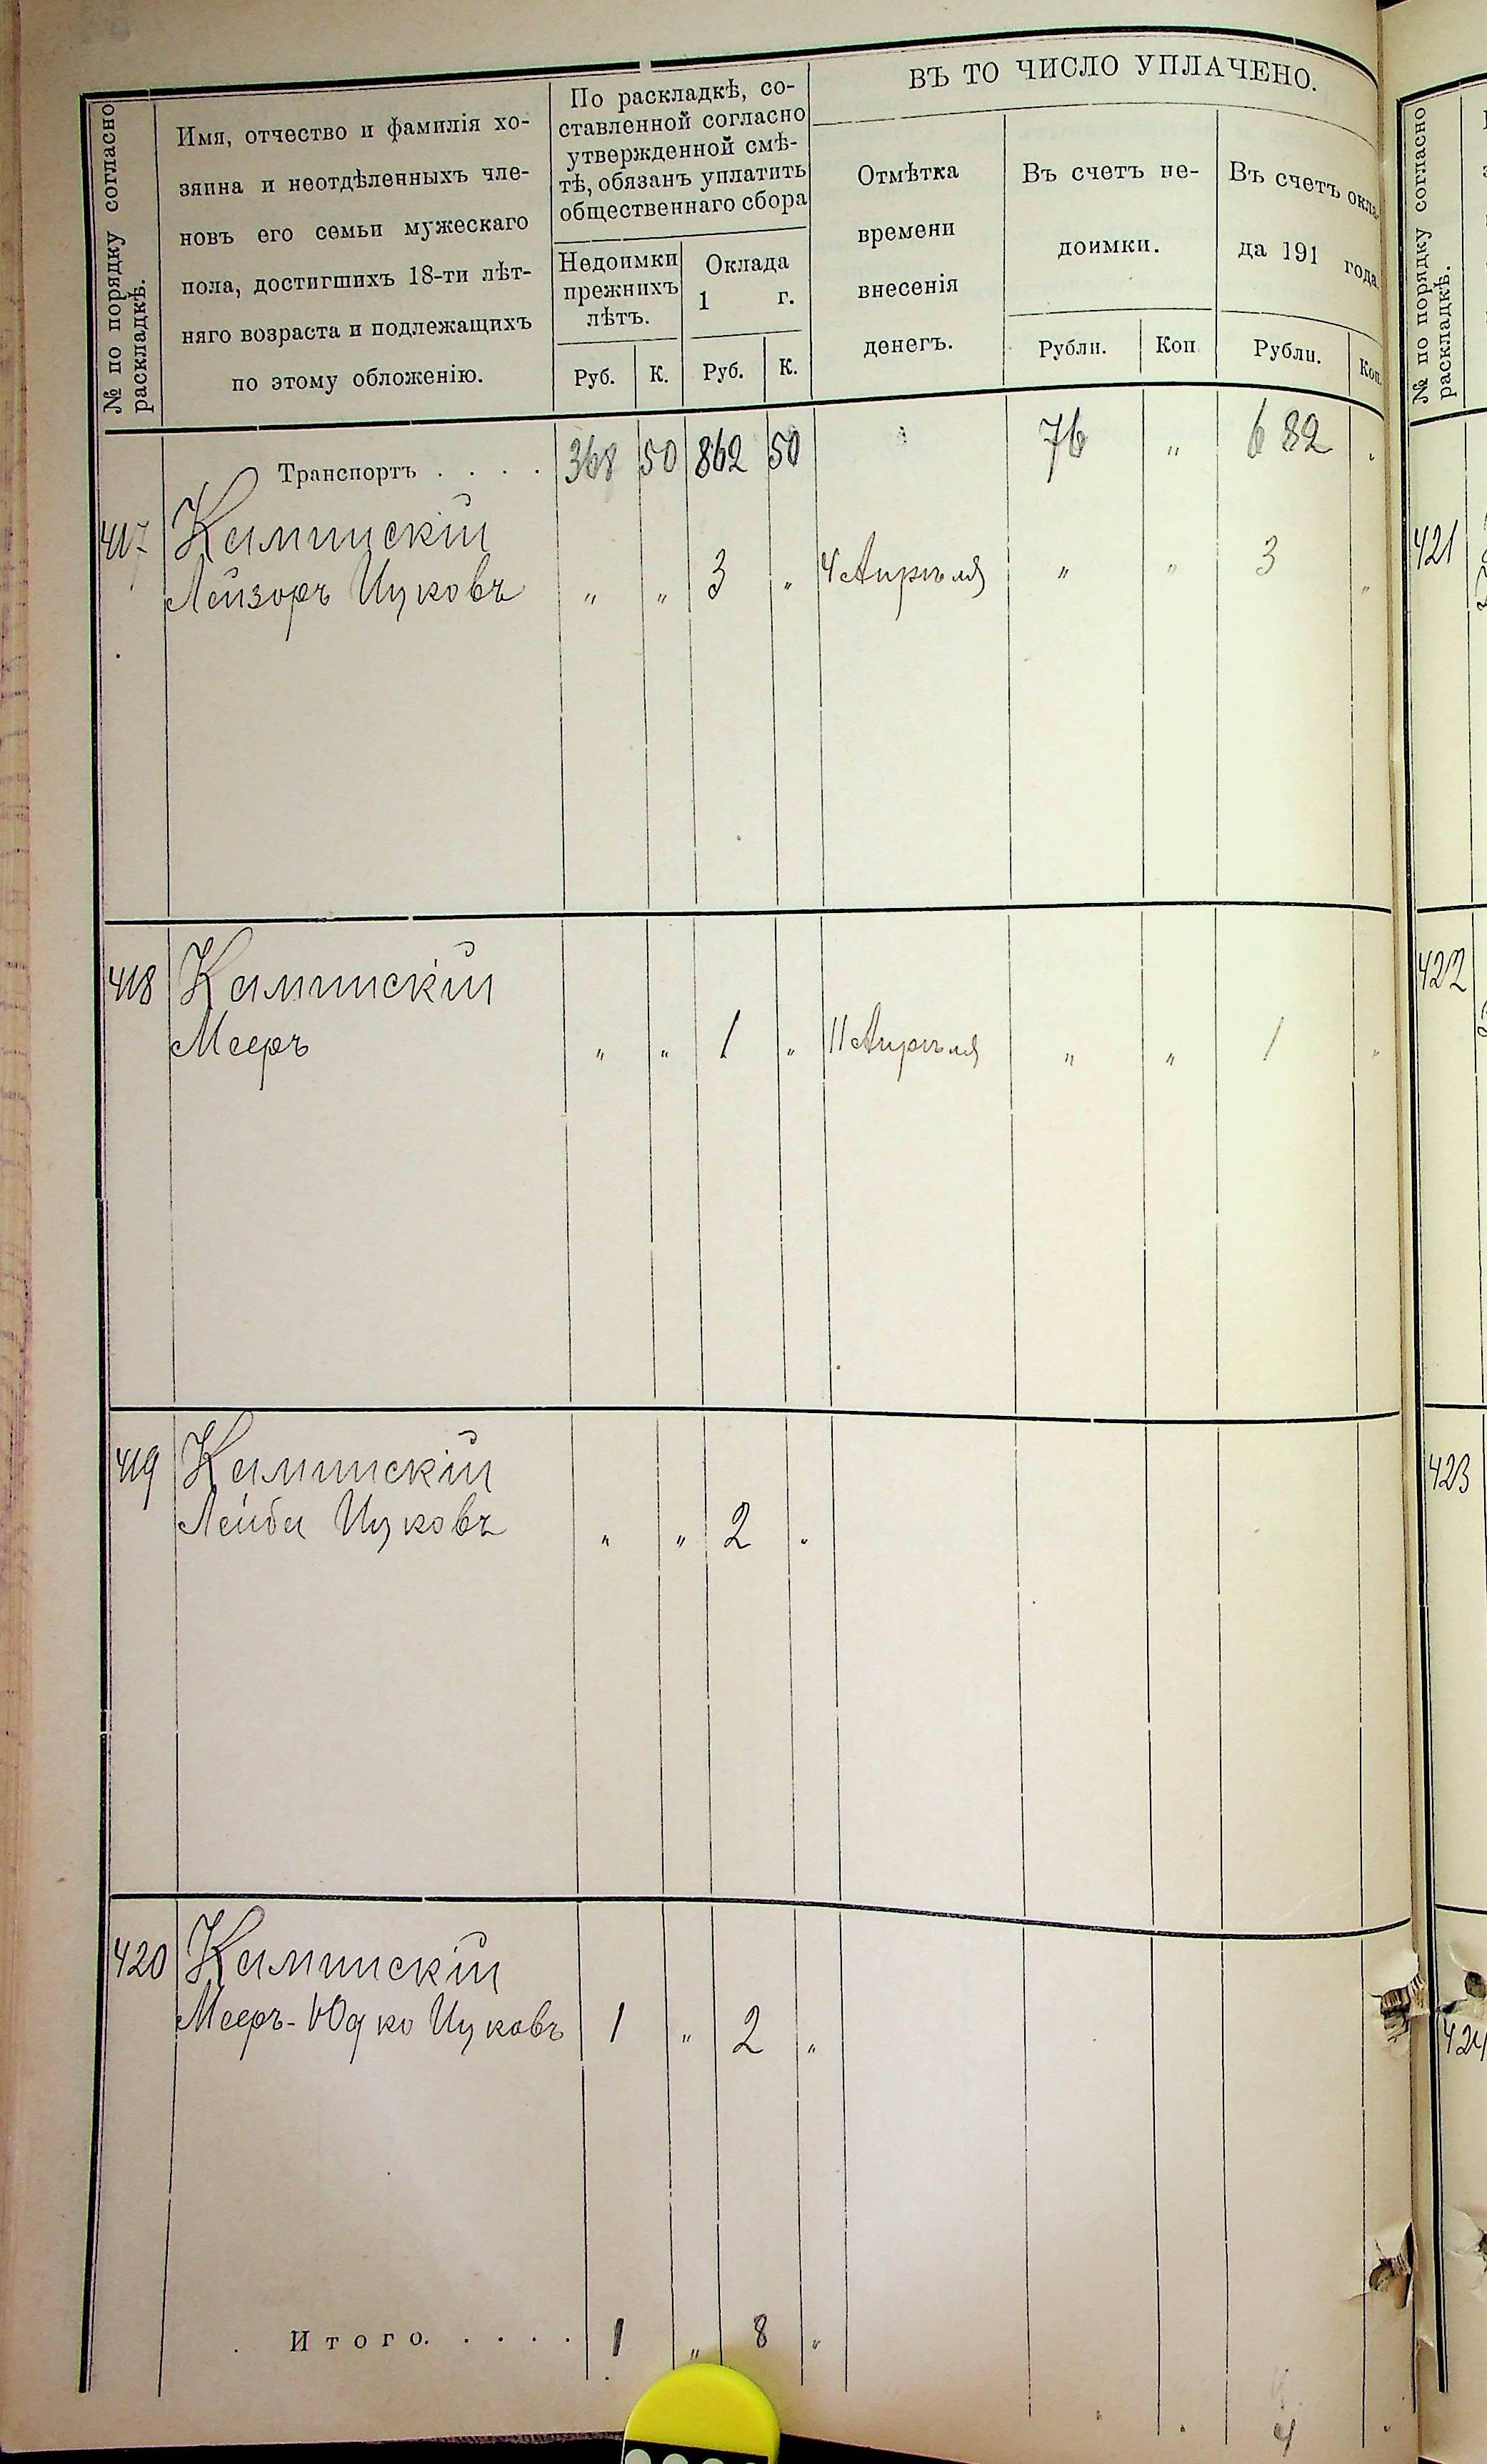 № по порядку согласно
раскладкѣ.
Имя, отчество и фамилія хо-
зяина и неотдѣленныхъ чле-
новъ его семьи мужескаго
пола, достигшихъ 18-ти лѣт-
няго возраста и подлежащихъ
по этому обложенію.
По раскладкѣ, со-
ставленной согласно
утвержденной смѣ-
тѣ, обязанъ уплатить
общественнаго сбора
Недоимки
прежнихъ
лѣтъ.
Оклада
1 г.
Руб. К. Руб. К.
ВЪ ТО ЧИСЛО УПЛАЧЕНО.
Отмѣтка
времени
внесенія
денегъ.
Въ счетъ не-
доимки.
Рубли. Коп
Въ счетъ окла-
да 191 года.
Рубли. Коп.
Транспортъ . . . . 368 50 862 50 76 " 682 "
417 Каминскій
Лейзоръ Ицковъ " " 3 " 4 Апрѣля " " 3 "
418 Каминскій
Мееръ " " 1 " 11 Апрѣля " " 1 "
419 Каминскій
Лейба Ицковъ " " 2 "
420 Каминскій
Мееръ-Юдко Ицковъ 1 " 2 "
Итого. . . . . 1 " 8 "
4
№ по порядку согласно
раскладкѣ.
421
422
423
424